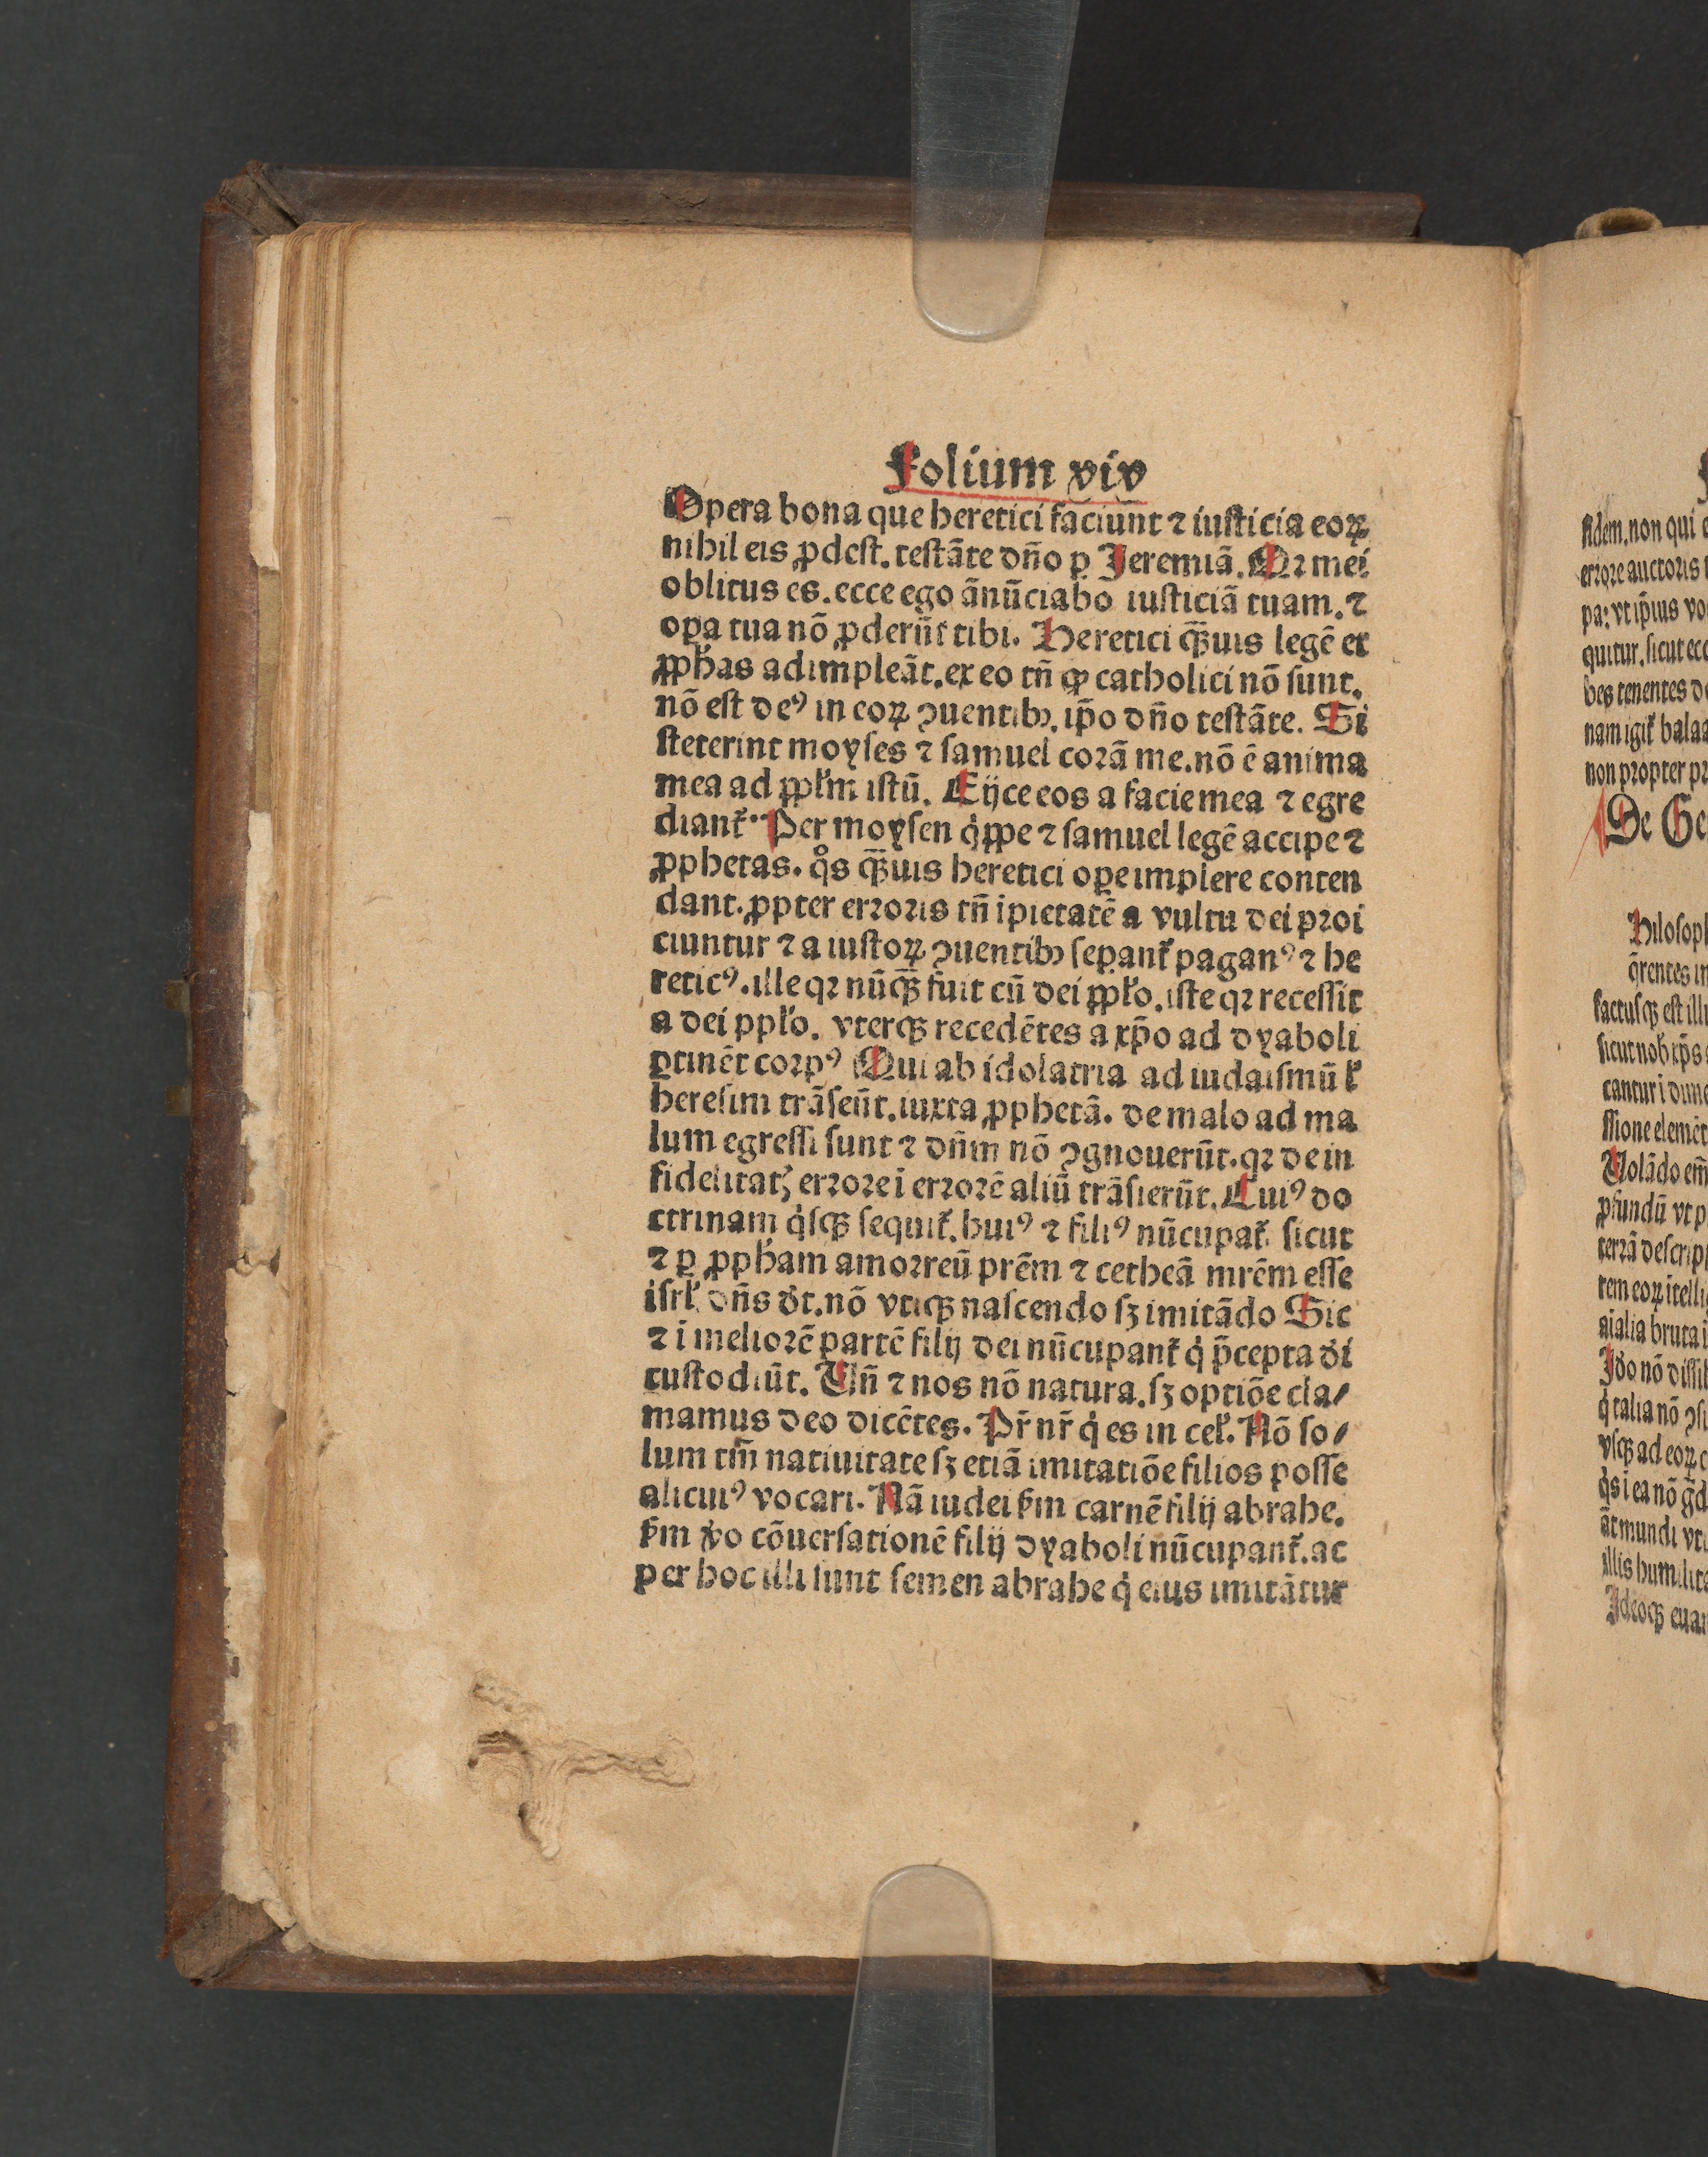 Folium xix
Opera bona que heretici faciunt ⁊ iusticia eoꝝ
nihil eis ꝓdest. testāte dño ꝑ Jeremiā. Qꝛ mei
oblitus es. ecce ego ānūciabo iusticiā tuam. ⁊
oꝑa tua nō ꝓderūt tibi. Heretici q̄ꝫuis legē et
ꝓph̓as adimpleāt. ex eo tñ ꝙ catholici nō sunt.
nō est deꝰ in eoꝝ ꝯuentibꝫ. ip̄o dño testāte. Si
steterint moyses ⁊ samuel corā me. nō ē anima
mea ad ppl̓m istū. Eijce eos a facie mea ⁊ egre
diant᷑. Per moysen q̇ppe ⁊ samuel legē accipe ⁊
ꝓphetas. qͦs q̄ꝫuis heretici oꝑe implere conten
dant. ꝓpter erroris tñ ipietatē a vultu dei proi
ciuntur ⁊ a iustoꝝ ꝯuentibꝫ seꝑant᷑ paganꝰ ⁊ he
reticꝰ. ille qꝛ nūq̄ꝫ fuit cū dei ppl̓o. iste qꝛ recessit
a dei ppl̓o. vterqꝫ recedētes a xp̄o ad dyaboli
ꝑtinēt corpꝰ Qui ab idolatria ad iudaismū l̓
heresim trāseūt. iuxta ꝓphetā. de malo ad ma
lum egressi sunt ⁊ dñm nō ꝯgnouerūt. qꝛ de in
fidelitatꝭ errore i errorē aliū trāsierūt. Cuiꝰ do
ctrinam q̇sqꝫ sequit᷑. huiꝰ ⁊ filiꝰ nūcupat᷑. sicut
⁊ ꝑ ꝓph̓am amorreū prēm ⁊ cetheā mrēm esse
isrl̓. dñs dt̓. nō vtiqꝫ nascendo sꝫ imitādo Sic
⁊ i meliorē partē filij dei nūcupant᷑ q̇ p̄cepta di̓
custodiūt. Uñ ⁊ nos nō natura. sꝫ optiōe cla⸗
mamus deo dicētes. Pr̄ nr̄ q̇ es in cel̓. Nō so⸗
lum tm̄ natiuitate sꝫ etiā imitatiōe filios posse
alicuiꝰ vocari. Nā iudei ẜm carnē filij abrahe.
ẜm v̓o cōuersationē filij dyaboli nūcupant᷑. ac
per hoc illi sunt semen abrahe q̇ eius imitātur
fidem. non qui
errore auctoris
pa: vt ip̄ius
quitur. sicut
bes tenentes
nam igit᷑
non propter
De
q̄rentes
factusqꝫ est
sicut nob̓ xp̄s
cantur i
ssione
Uolādo em̄
ꝓfundū vt
terrā
rem eoꝝ
aialia bruta
Jdo̓ nō
q̇ talia nō
vsqꝫ ad eoꝝ
q̇s i ea nō
āt mundi
illis
Jdeoqꝫ